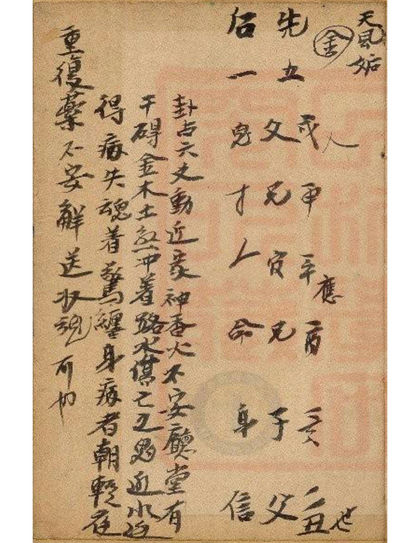 天風姤
金
戌人申午應酉亥丑世
先五父兄官兄子父
后一鬼才人命身信
卦占六丈動近 神香火不安廳堂有
干碍金木土煞冲着路水 亡 近水边
得病失魂着驚纏身病者朝輕夜
重復藥不安解送收魂可也